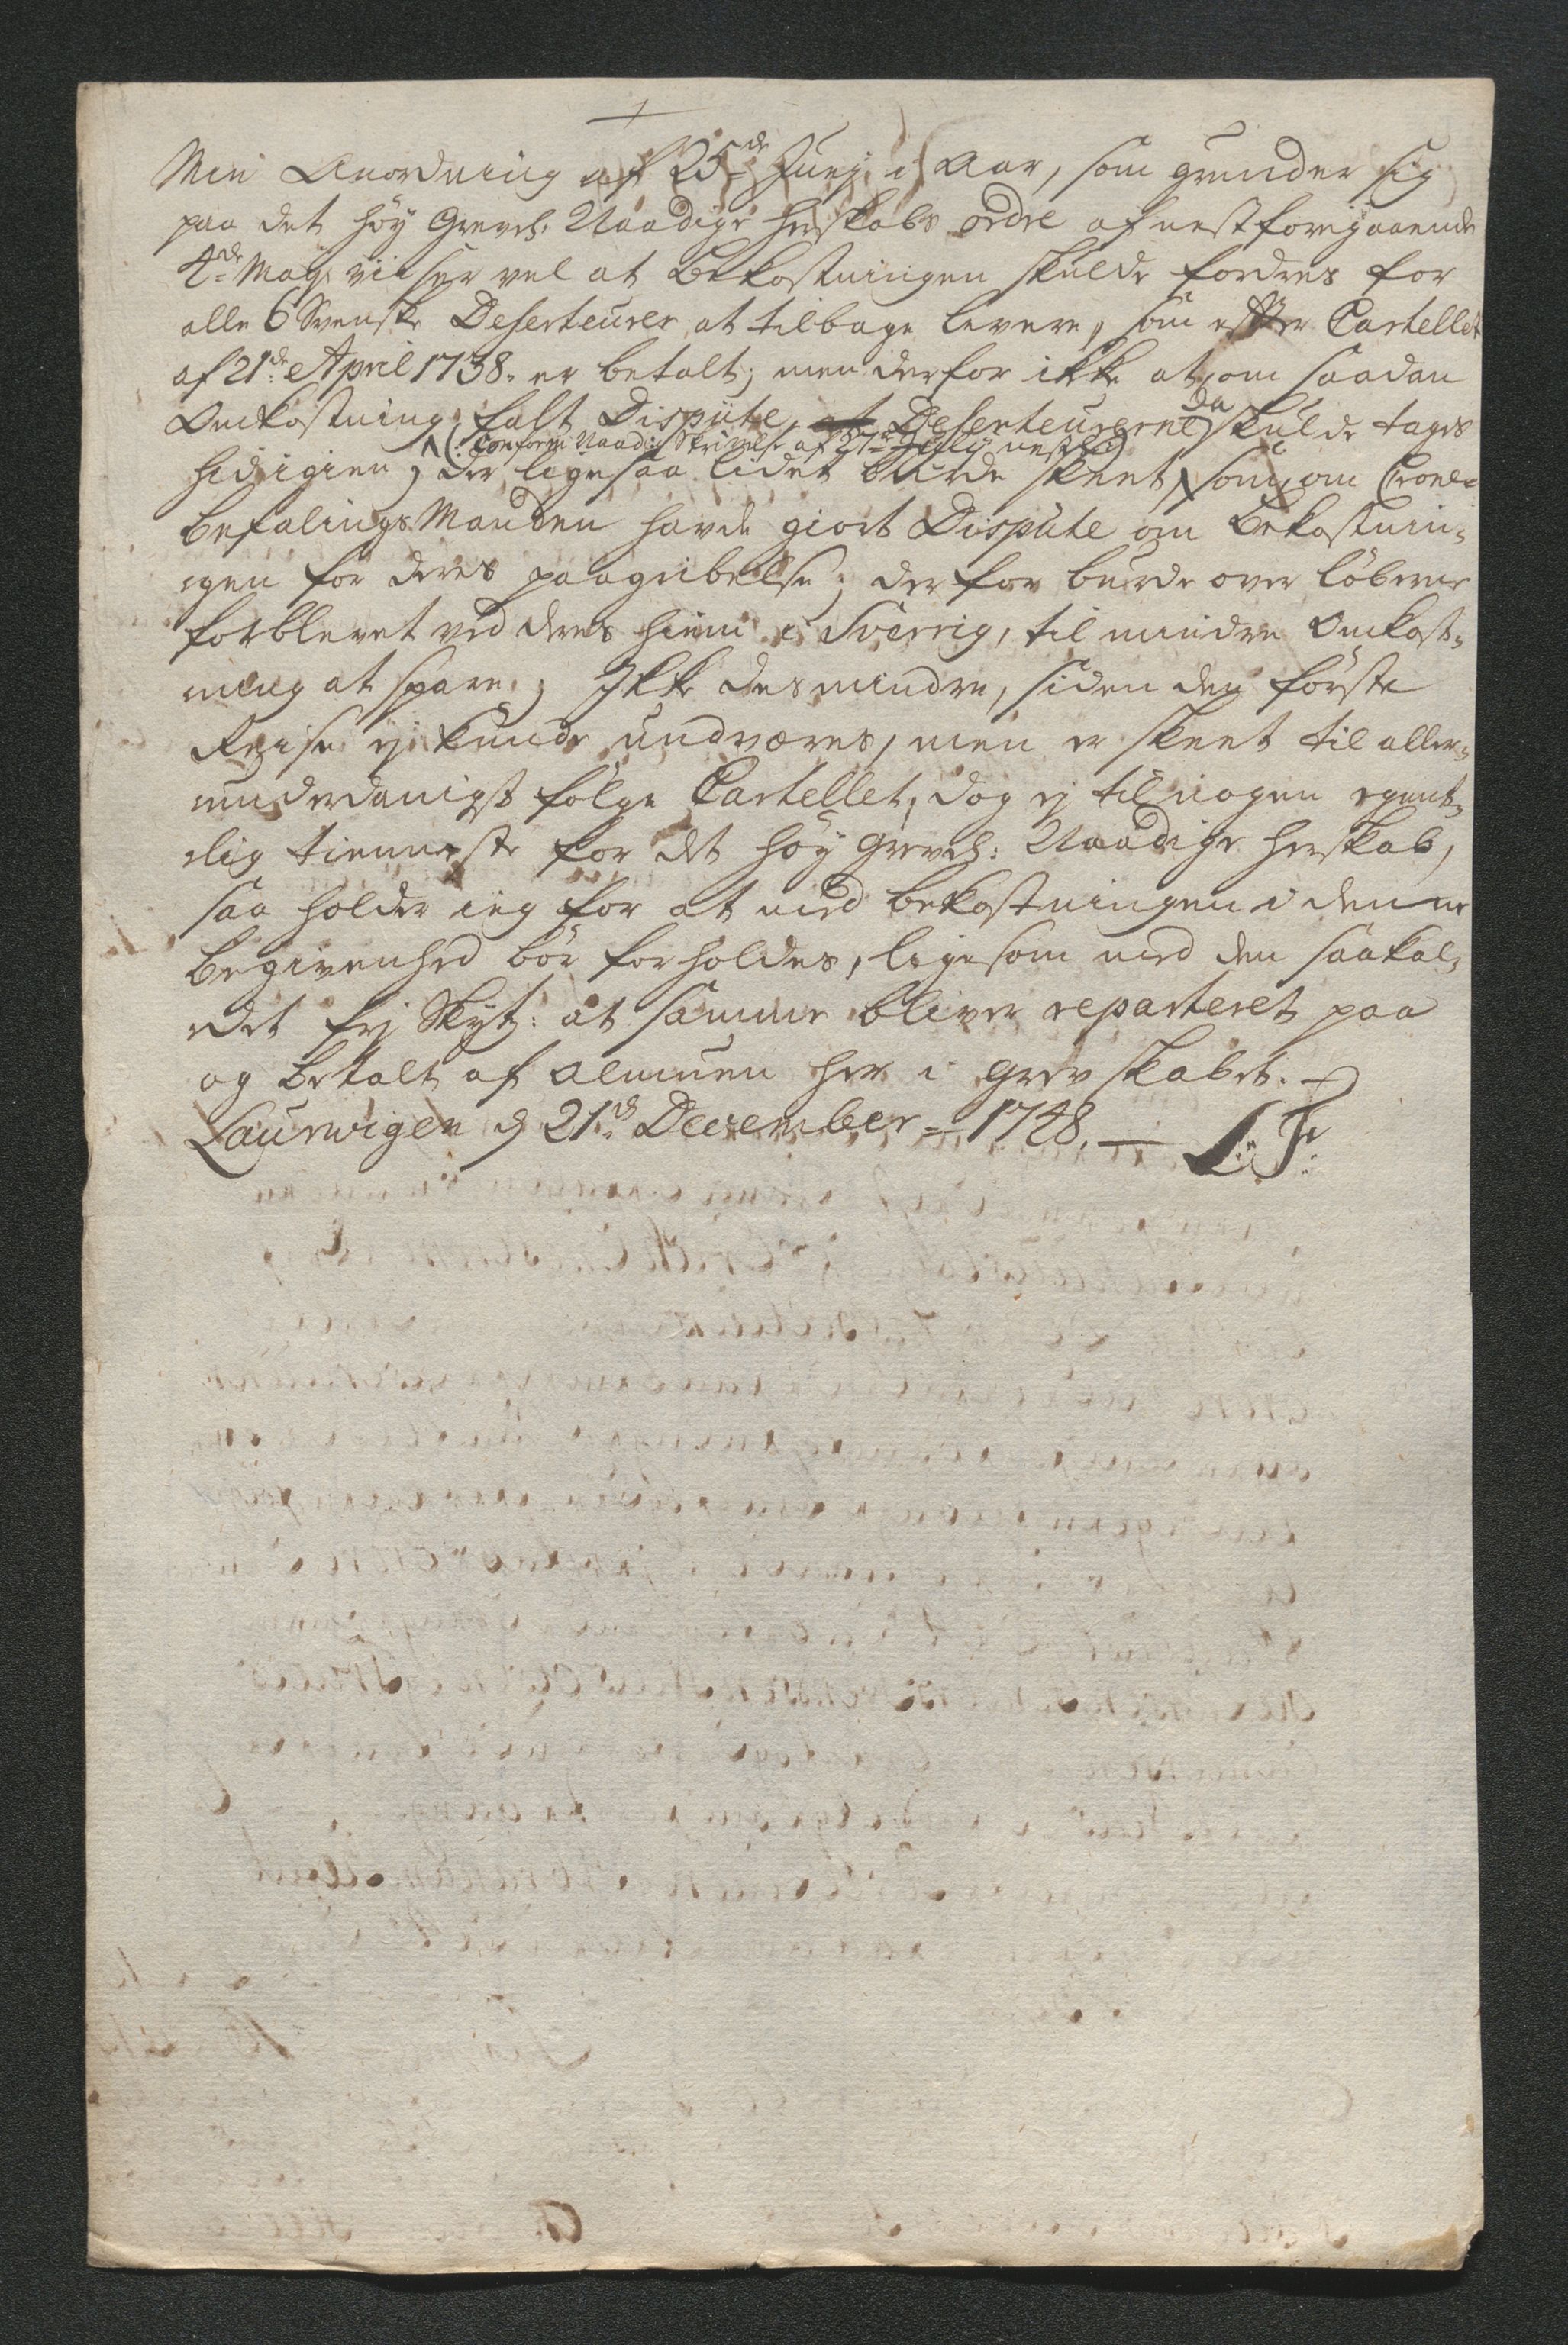 Min Anordning af 25de Junj i Aar, som grunder sig
paa det höy Grevel: Naadige Herskabs ordre af nestforigaaende
4de Maij viiser vel at Bekostningen skulde fordres for
alle 6 Svenske Deserteurer at tilbage levere, som efter Cartellet
af 21de April 1738. er betalt; men derfor ikke at, om saadan
Omkostning falt Dispüte, Deserteurerne da skulde tages
(: conform Naadig Skrivelse af 27de Julij nestl:)
hid igien, der ligesaa lidet burde skeet, som, om Crone-
befalings Manden havde giort Dispüte om Bekostnin-
gen for deres paagribelse; derfor burde over löberne
forblevet ved deres hiem i Sverrig, til mindre Omkost-
ning at spare; Ikke des mindre, siden den förste
Reise ej kunde undværes, men er skeet til aller-
underdanigst fölge Cartellet, dog ej til nogen egent-
lig tienneste for det höy Grevel: Naadige Herskab,
saa holder ieg for at med bekostningen i denne
begivenhed bör forholdes, ligesom med den saakal-
det frj Skyt: at samme bliver reparteret paa
og betalt af Almuen her i Grevskabet.
Laurwigen d 21de December 1748.